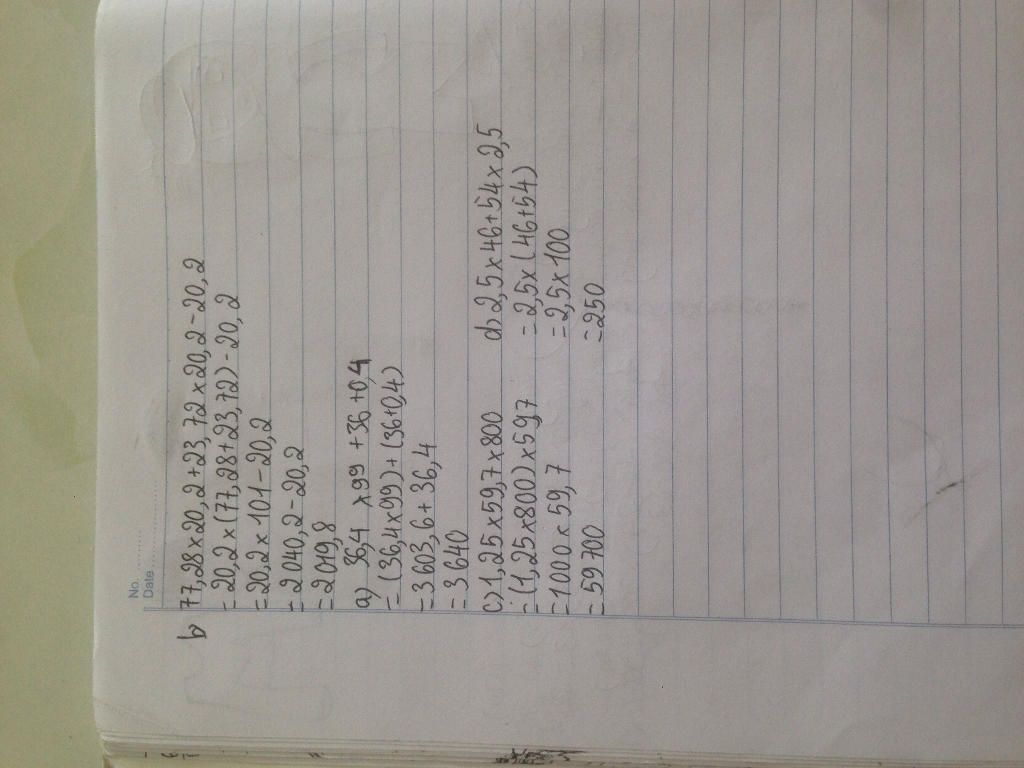 No. ............
Date ..................
b 77,28 x 20,2 + 23,72 x 20,2 - 20,2
= 20,2 x (77,28 + 23,72) - 20,2
= 20,2 x 101 - 20,2
= 2 040,2 - 20,2
= 2 019,8
a) 36,4 x 99 + 36 + 0,4
= (36,4 x 99) + (36 + 0,4)
= 3 603,6 + 36,4
= 3 640
c) 1,25 x 59,7 x 800
= (1,25 x 800) x 59,7
= 1000 x 59,7
= 59 700
d> 2,5 x 46 + 54 x 2,5
= 2,5 x (46 + 54)
= 2,5 x 100
= 250